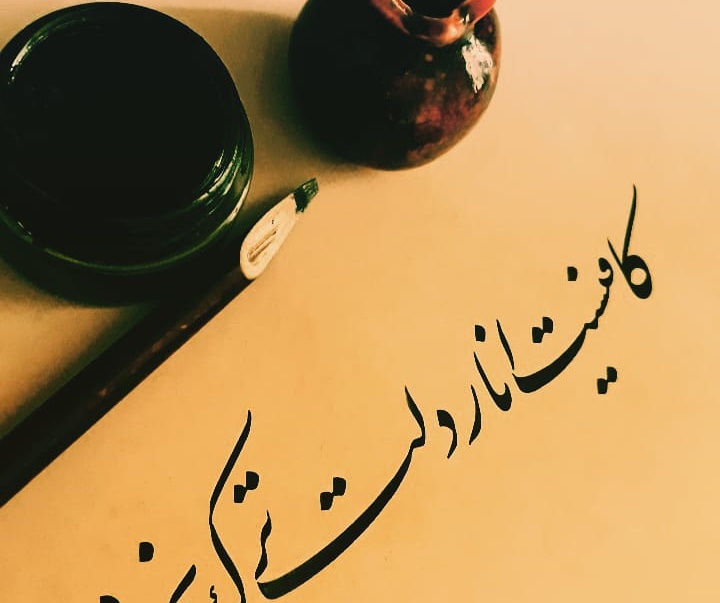 کافیست انار دلت ترک